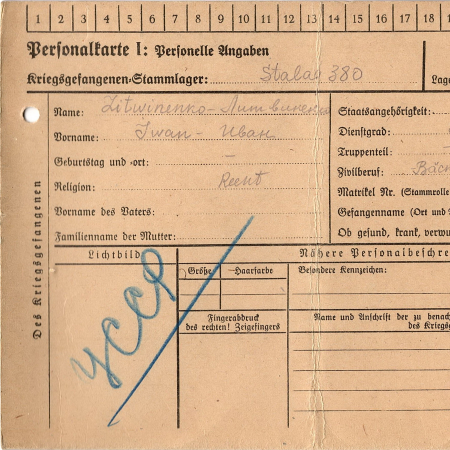 1 2 3 4 5 6 7 8 9 10 11 12 13 14 15 16 17 18
Personalkarte I: Personelle Angaben
Kriegsgefangenen-Stammlager: Stalag 380
Lage
Name: Litwinenko - Литвиненко
Vorname: Iwan - Иван
Geburtstag und -ort: –
Religion:
Vorname des Vaters:
Familienname der Mutter:
Staatsangehörigkeit:
Dienstgrad:
Truppenteil: –
Zivilberuf: Bäck
Matrikel Nr. (Stammrolle
Gefangenname (Ort und
Ob gesund, krank, verwu
Des Kriegsgefangenen
Lichtbild
Nähere Personalbeschre
Größe Haarfarbe
Besondere Kennzeichen:
Fingerabdruck
des rechten! Zeigefingers
Name und Anschrift der zu benach
des Kriegs
УССР